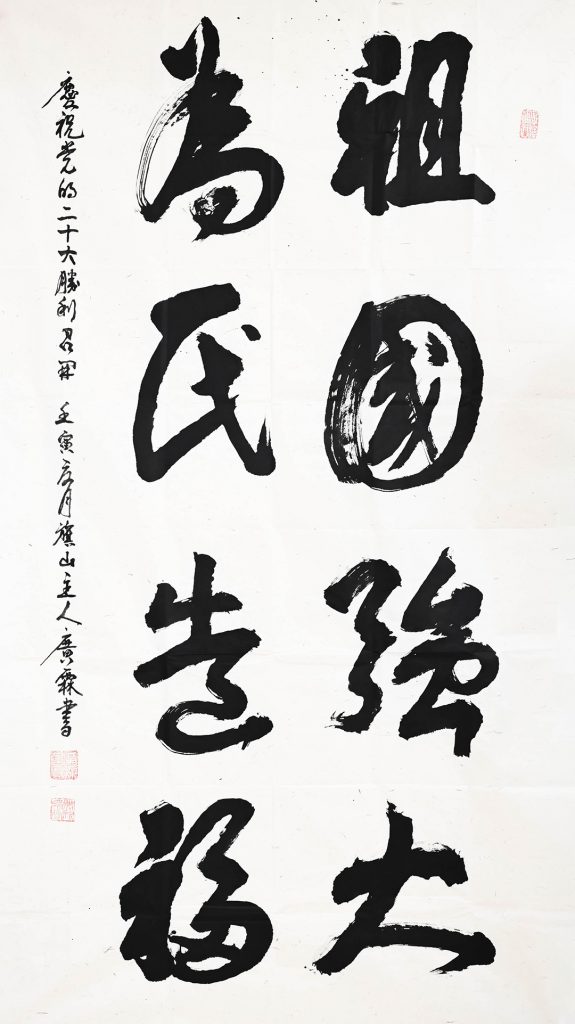 祖國強大
為民造福
慶祝党的二十大勝利召開 壬寅月旗山主人廣霖書